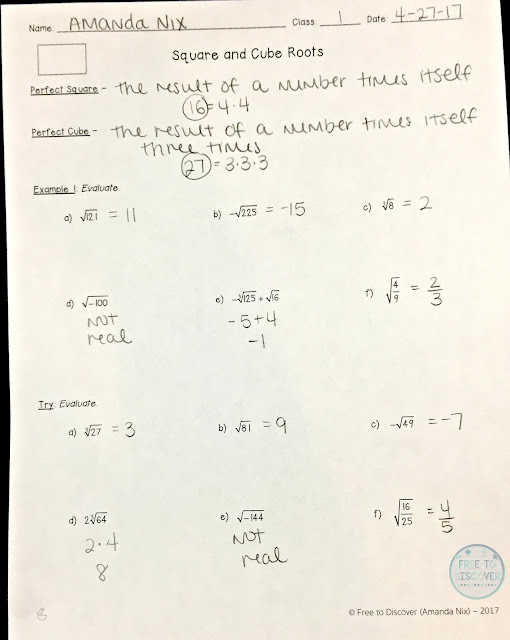 Name: Amanda Nix Class: 1 Date: 4-27-17
Square and Cube Roots
Perfect Square - the result of a number times itself
16 = 4·4
Perfect Cube - the result of a number times itself
three times
27 = 3·3·3
Example 1: Evaluate.
a) √121 = 11 b) -√225 = -15 c) ∛8 = 2
d) √-100 e) -∛125 + √16 f) √4/9 = 2/3
not -5+4
real -1
Try: Evaluate.
a) ∛27 = 3 b) √81 = 9 c) -√49 = -7
d) 2∛64 e) √-144 f) √16/25 = 4/5
2·4 not
8 real
FREE TO
DISCOVER
© Free to Discover (Amanda Nix) – 2017